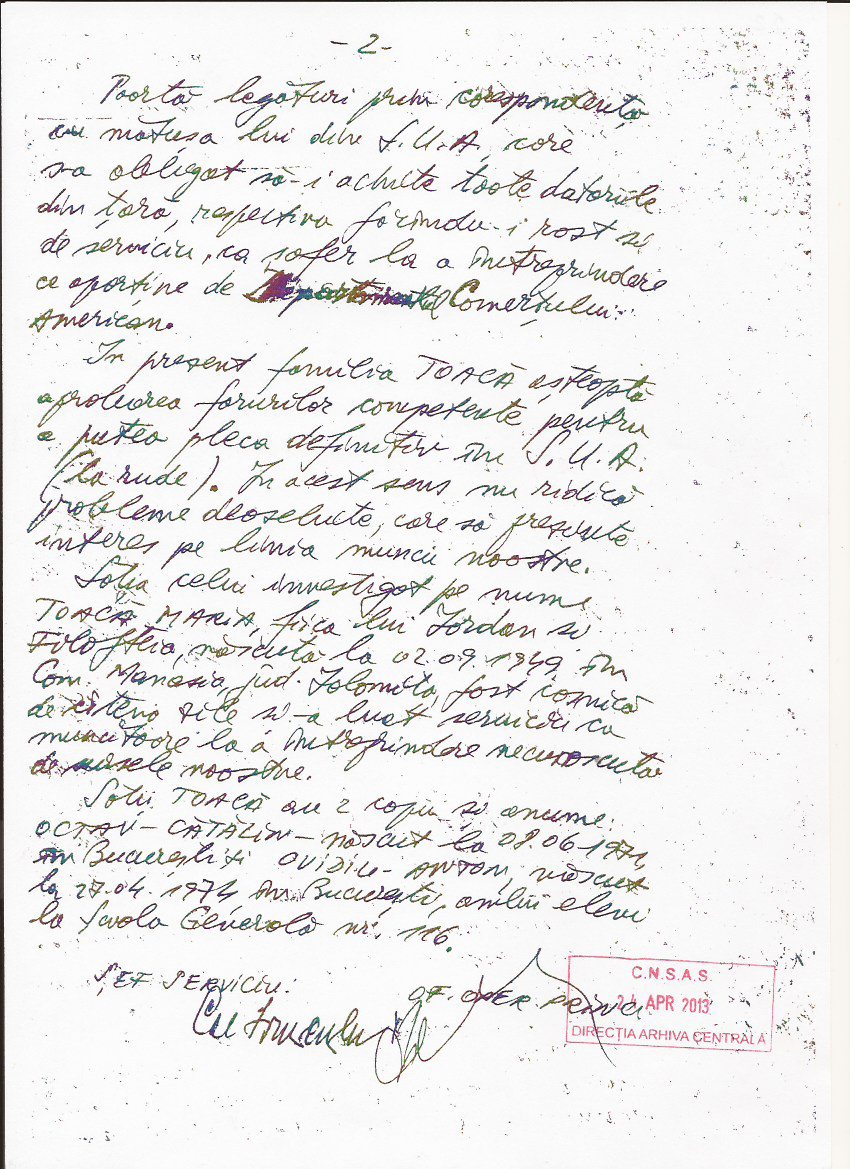 - 2 -
Poartă legături prin corespondență
cu mătușa lui din S.U.A, care
s-a obligat să-i achite toate datoriile
din țară, respectiv făcîndu-i rost și
de serviciu, ca șofer la o întreprindere
ce aparține de Departamentul Comerțului
American.
In prezent familia TOACĂ așteaptă
aprobarea forurilor competente pentru
a putea pleca definitiv în S.U.A.
(la rude). In acest sens nu ridică
probleme deosebite, care să prezinte
interes pe linia muncii noastre.
Soția celui investigat pe nume
TOACĂ MARIA, fiica lui Iordan și
Filofttia, născută la 02.09.1949 în
Com. Manasia, jud. Ialomița, fost casnică
de cîteva zile și-a luat serviciu ca
muncitoare la o întreprindere necunoscută
de sursele noastre.
Soții TOACĂ au 2 copii și anume:
OCTAV-CĂTĂLIN- născut la 28.06.1971
în București și OVIDIU-ANTON, născut
la 27.04.1974 în București, ambii elevi
la Școala Generală nr. 116.
ȘEF SERVICIU:
OF. OPER
C.N.S.A.S.
24 APR 2013
DIRECȚIA ARHIVA CENTRALĂ